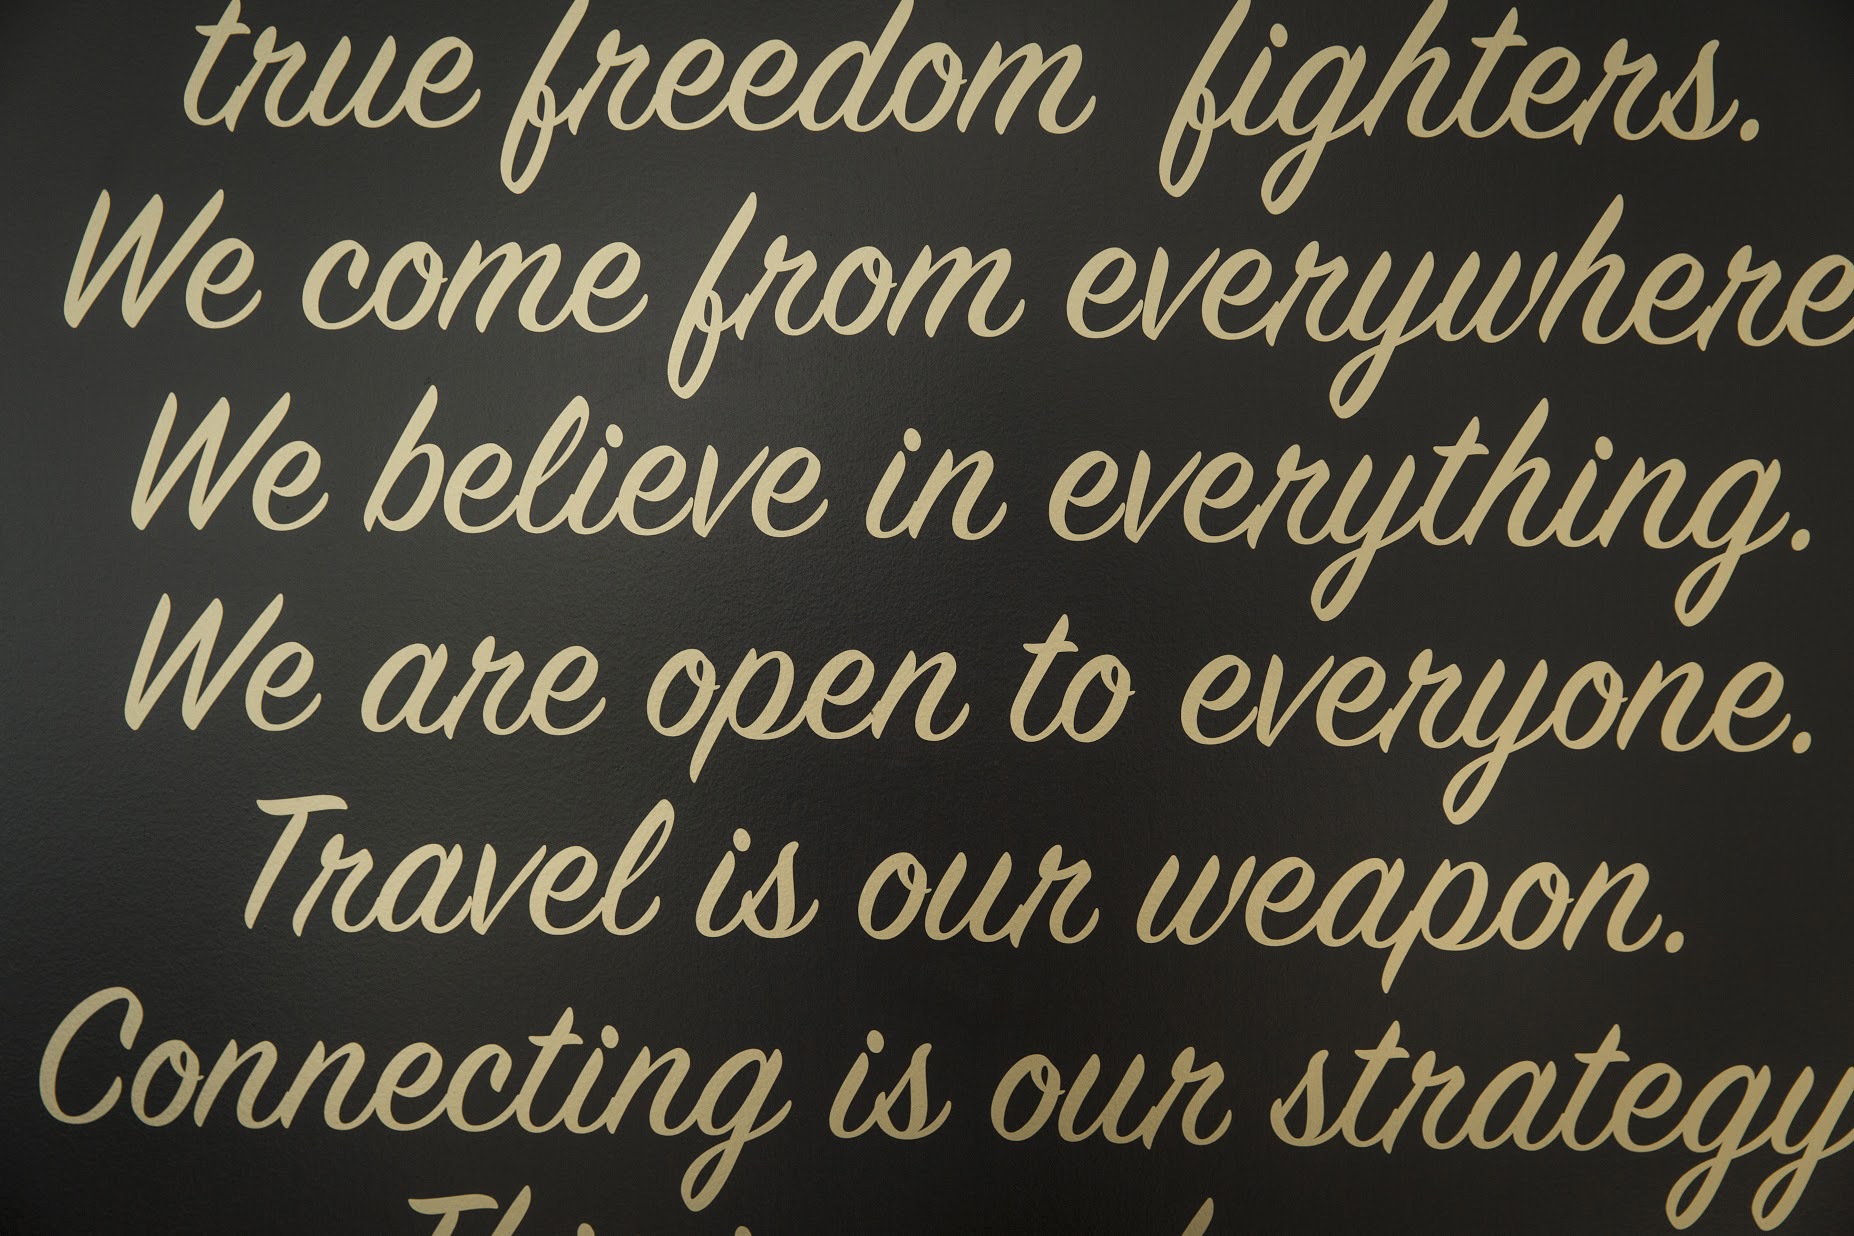 true freedom fighters.
We come from everywhere
We believe in everything.
We are open to everyone.
Travel is our weapon.
Connecting is our strategy